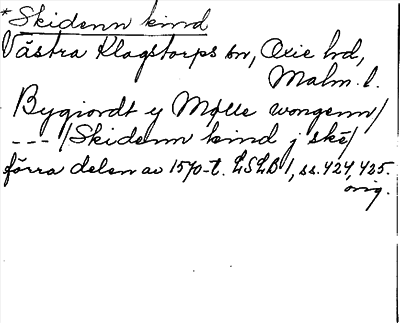 *Skidenn kind
Västra Klagstorps sn, Oxie hd,
Malm. l.
Bygiordt y Mølle wongenn/
--- /Skidenn kind j skë/
förra delen av 1570-t. LSLB 1, ss. 424, 425.
orig.